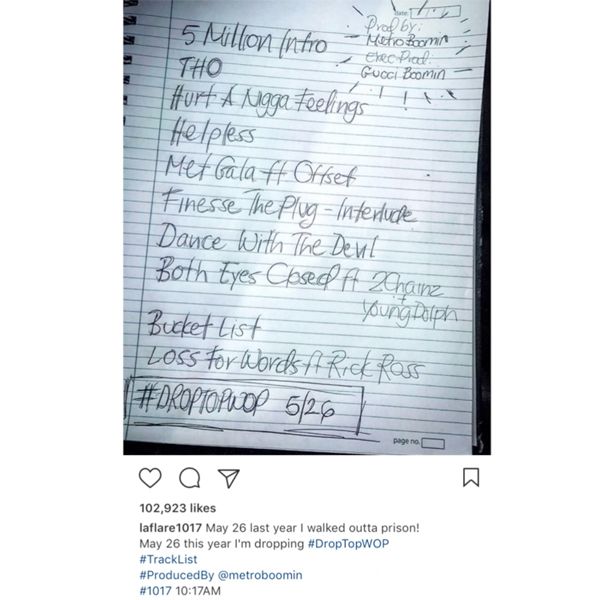 Prod by:
Metro Boomin
Exec Prod:
Gucci Boomin
5 Million Intro
THO
Hurt A Nigga Feelings
Helpless
Met Gala ft Offset
Finesse The Plug - Interlude
Dance With The Devil
Both Eyes Closed ft 2Chainz
+
Young Dolph
Bucket List
Loss For Words ft Rick Ross
#DROPTOPWOP 5/26
page no.
102,923 likes
laflare1017 May 26 last year I walked outta prison!
May 26 this year I'm dropping #DropTopWOP
#TrackList
#ProducedBy @metroboomin
#1017 10:17AM